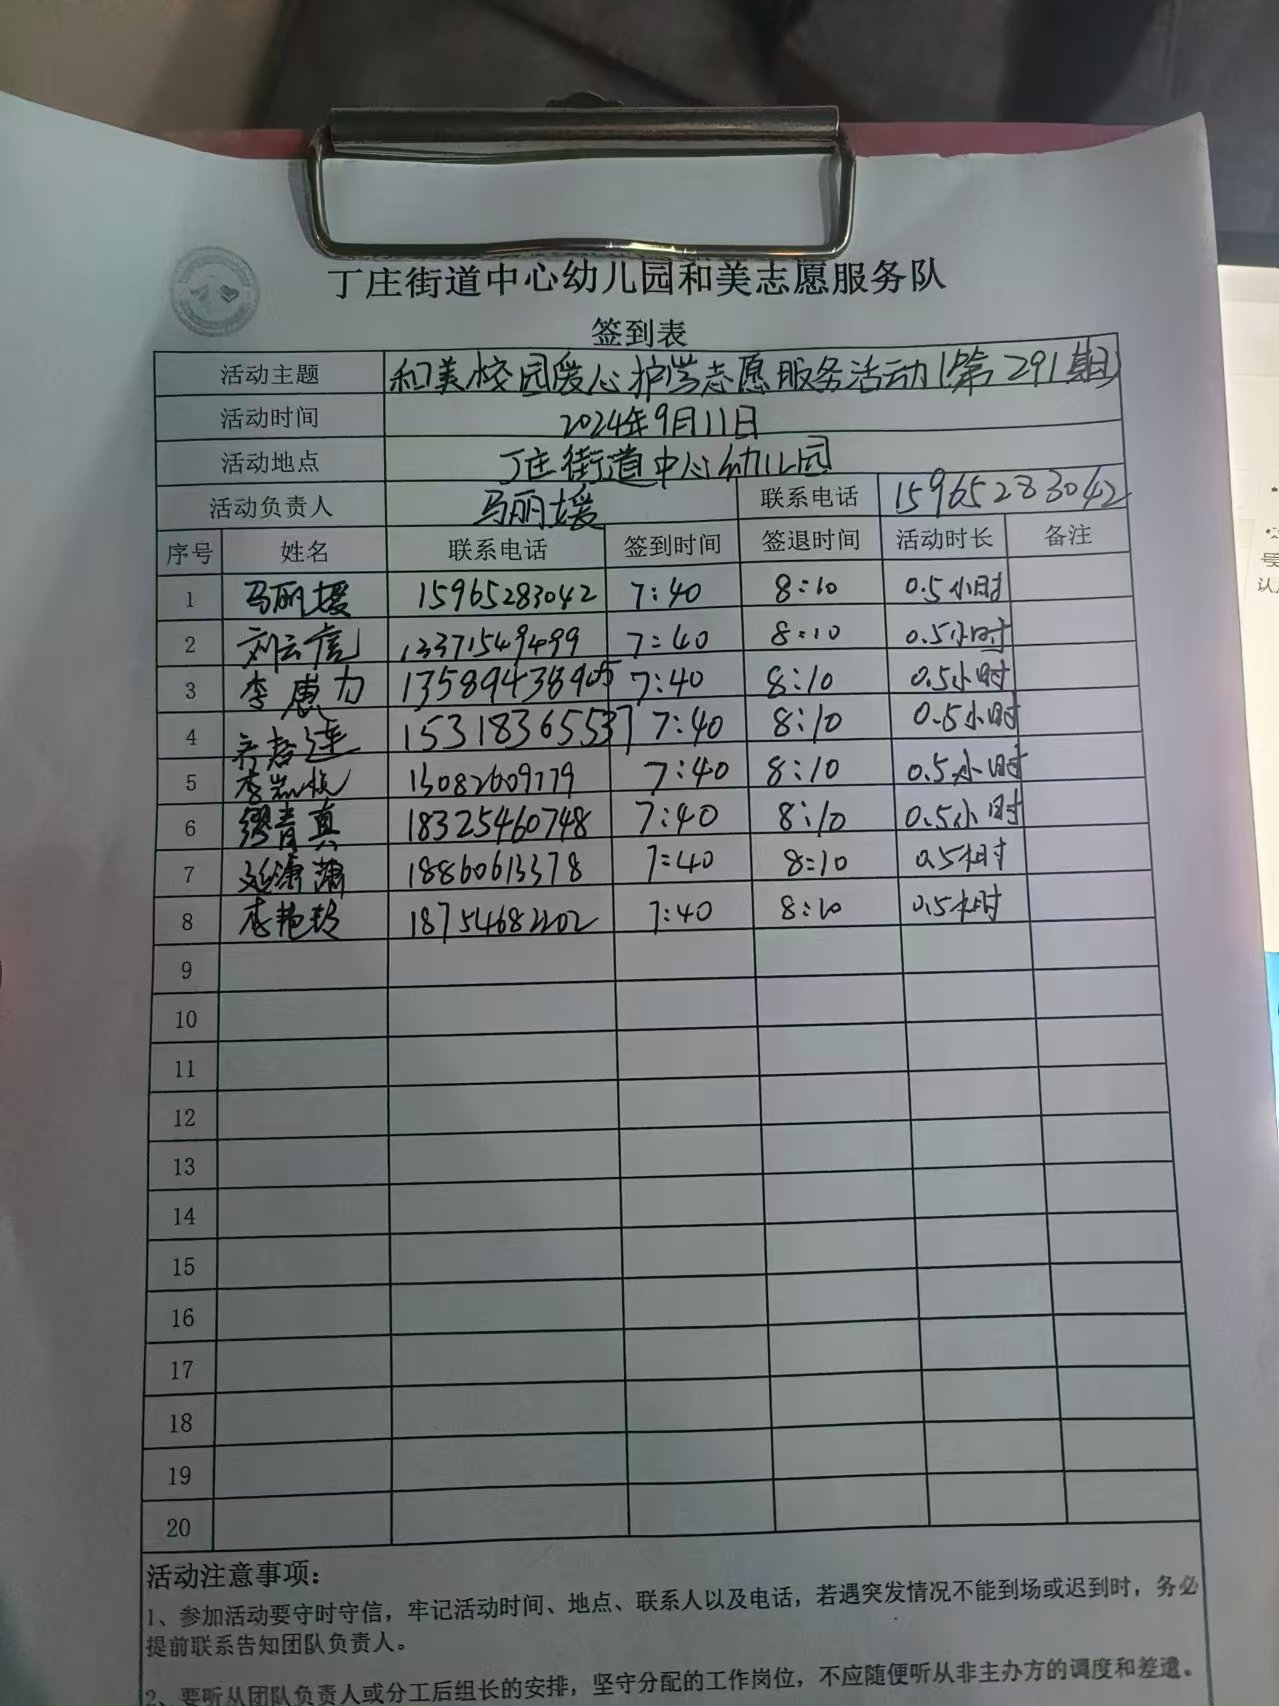 丁庄街道中心幼儿园和美志愿服务队
签到表
活动主题 和美校园爱心护学志愿服务活动(第291期)
活动时间 2024年9月11日
活动地点 丁庄街道中心幼儿园
活动负责人 马丽媛 联系电话 15965283042
序号 姓名 联系电话 签到时间 签退时间 活动时长 备注
1 马丽媛 15965283042 7:40 8:10 0.5小时
2 刘云信 13371549499 7:40 8:10 0.5小时
3 李惠力 13589438905 7:40 8:10 0.5小时
4 15318365537 7:40 8:10 0.5小时
5 15082609779 7:40 8:10 0.5小时
6 缪青真 18325460748 7:40 8:10 0.5小时
7 潇 18860613378 7:40 8:10 0.5小时
8 李艳玲 18754682202 7:40 8:10 0.5小时
9
10
11
12
13
14
15
16
17
18
19
20
活动注意事项:
1、参加活动要守时守信,牢记活动时间、地点、联系人以及电话,若遇突发情况不能到场或迟到时,务必
提前联系告知团队负责人。
2、要听从团队负责人或分工后组长的安排,坚守分配的工作岗位,不应随便听从非主办方的调度和差遣。